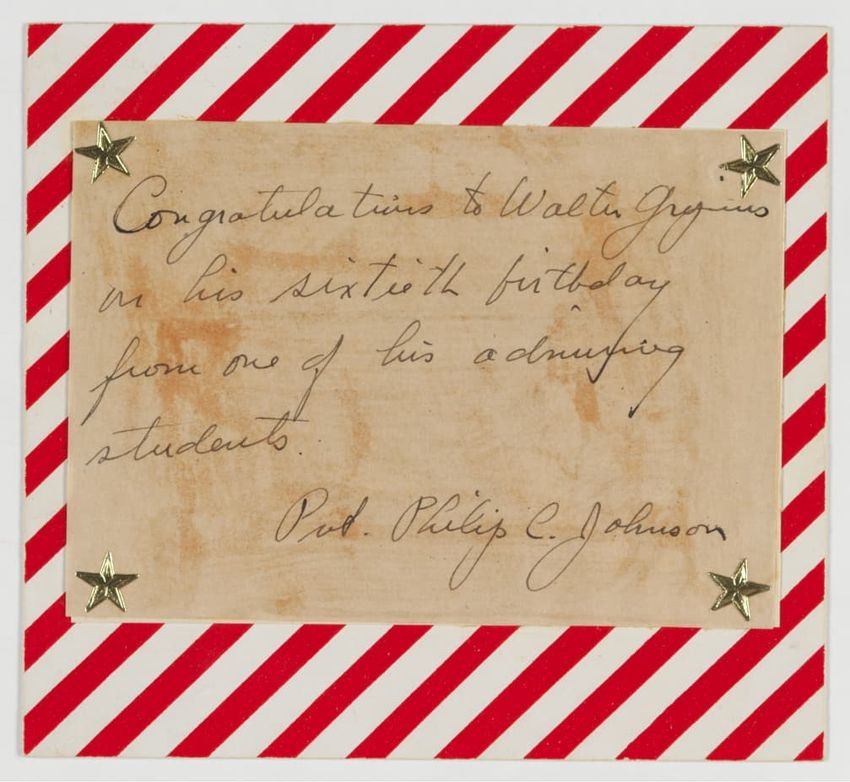 Congratulations to Walter Gropius
on his sixtieth birthday
from one of his admiring
students.
Pvt. Philip C. Johnson